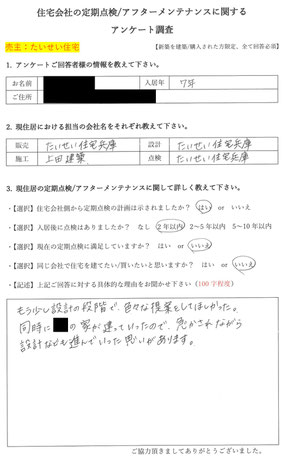 住宅会社の定期点検/アフターメンテナンスに関する
アンケート調査
売主：たいせい住宅
【新築を建築/購入された方限定。全て回答必須】
1. アンケートご回答者様の情報を教えて下さい。
お名前 入居年 7年
ご住所
2. 現住居における担当の会社名をそれぞれ教えて下さい。
販売 たいせい住宅兵庫 設計 たいせい住宅兵庫
施工 上田建築 点検 たいせい住宅兵庫
3. 現住居の定期点検/アフターメンテナンスに関して詳しく教えて下さい。
・【選択】住宅会社側から定期点検の計画は示されましたか？ はい or いいえ
・【選択】入居後に点検はありましたか？ なし 2年以内 2～5年以内 5～10年以内
・【選択】現在の定期点検に満足していますか？ はい or いいえ
・【選択】同じ会社で住宅を建てたい/買いたいと思いますか？ はい or いいえ
・【記述】上記ご回答に対する具体的な理由をお聞かせ下さい（100字程度）
もう少し設計の段階で、色々な提案をしてほしかった。
同時に の家が建っていったので、急かされながら
設計なども進んでいった思いがあります。
ご協力頂きましてありがとうございました。